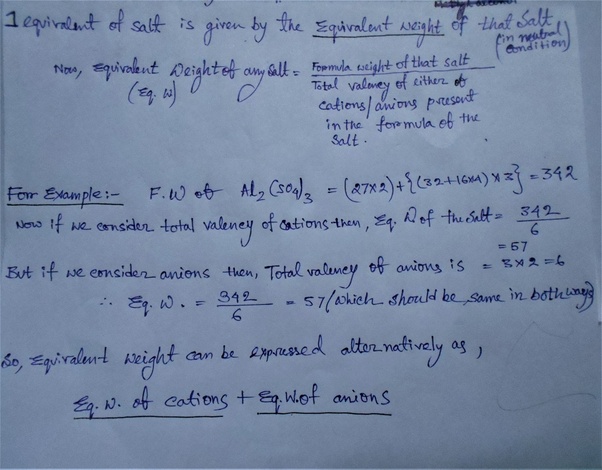 1 equivalent of salt is given by the Equivalent weight of that salt
(in neutral condition)
Now, Equivalent Weight of any salt = Formula weight of that salt
(Eq. W)
Total valency of either of
cations/anions present
in the formula of the
salt.
For Example:- F.W of Al2(SO4)3 = (27x2)+{(32+16x4)x3} = 342
Now if we consider total valency of cations then, Eq. W of the salt = 342
6
= 57
But if we consider anions then, Total valency of anions is = 3x2 = 6
∴ Eq. W. = 342 = 57 (which should be same in both ways)
6
So, Equivalent weight can be expressed alternatively as,
Eq. W. of cations + Eq. W. of anions